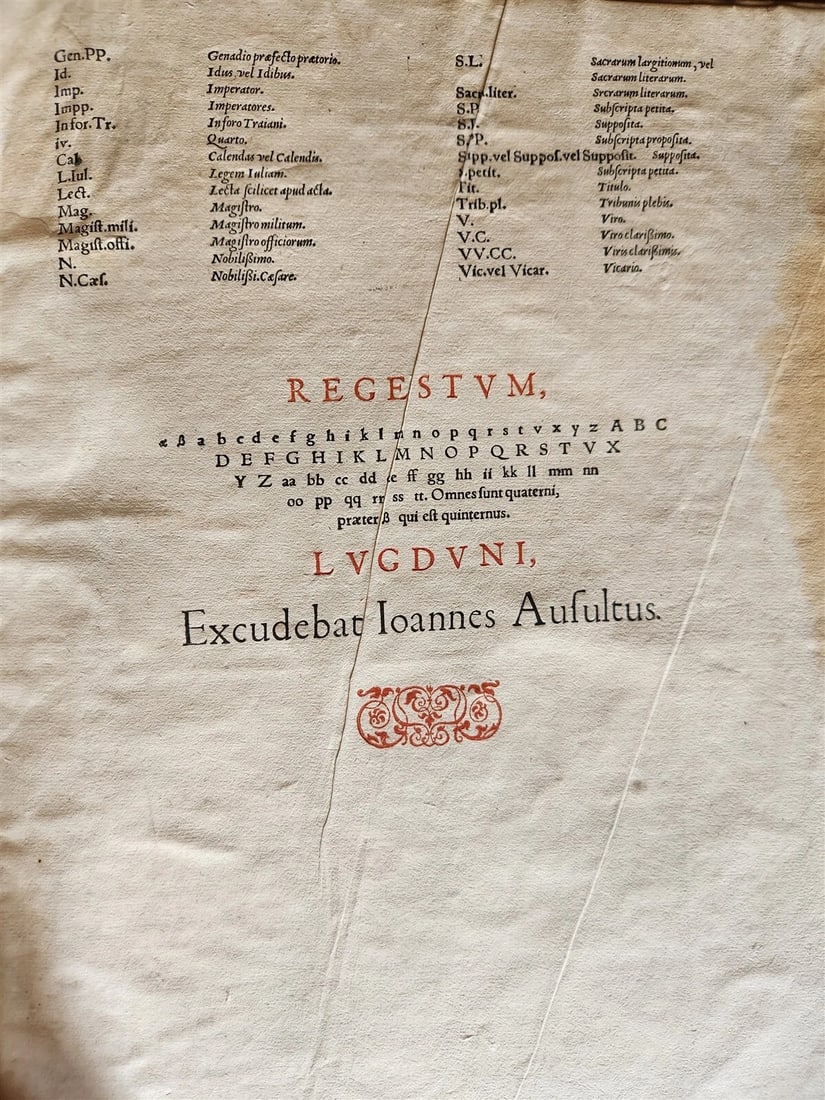 Gen.PP. Genadio præfecto prætorio.
Id. Idus vel Idibus.
Imp. Imperator.
Impp. Imperatores.
In for.Tr. In foro Traiani.
iv. Quarto.
Cal. Calendas vel Calendis.
L.Iul. Legem Iuliam.
Lect. Lecta ſcilicet apud acta.
Mag. Magiſtro.
Magiſt.mili. Magiſtro militum.
Magiſt.offi. Magiſtro officiorum.
N. Nobilißimo.
N.Cæſ. Nobilißi.Cæſare.
S.L. Sacrarum largitionum, vel
Sacrarum literarum.
Sacr.liter. Srcrarum literarum.
S.P. Subſcripta petita.
Suppoſita.
S.P. Subſcripta propoſita.
Supp.vel Suppoſ.vel Suppoſit. Suppoſita.
petit. Subſcripta petita.
Tit. Titulo.
Trib.pl. Tribunis plebis.
V. Viro.
V.C. Viro clarißimo.
VV.CC. Viris clarißimis.
Vic.vel Vicar. Vicario.
REGESTVM,
α β a b c d e f g h i k l m n o p q r s t v x y z A B C
D E F G H I K L M N O P Q R S T V X
Y Z aa bb cc dd ee ff gg hh ii kk ll mm nn
oo pp qq rr ss tt. Omnes ſunt quaterni,
præter β qui eſt quinternus.
LVGDVNI,
Excudebat Ioannes Auſultus.